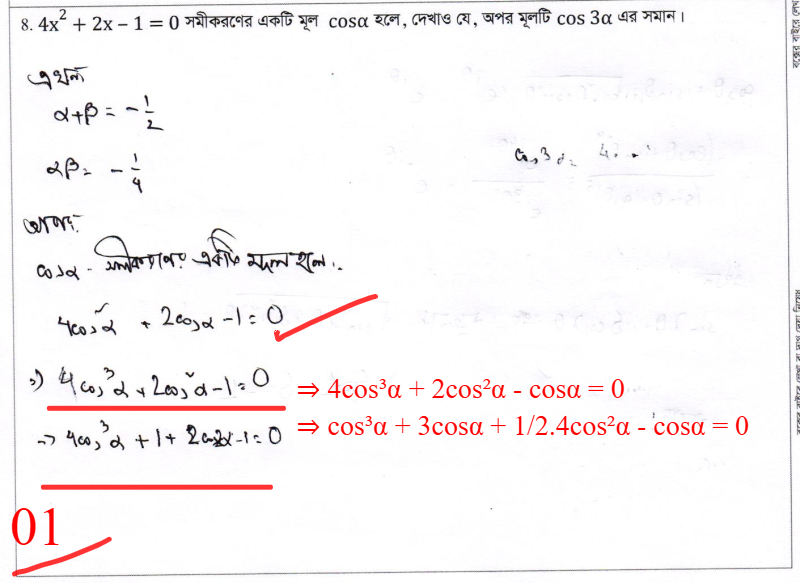 8. 4x² + 2x – 1 = 0 সমীকরণের একটি মূল cosα হলে, দেখাও যে, অপর মূলটি cos 3α এর সমান।
এখন
α+β = -1/2
αβ = -1/4
cos3α = 4
আবার,
cosα - সমীকরণের একটি মূল হলে,
4cos²α + 2cosα -1 = 0
⇒) 4cos³α + 2cos²α -1 = 0 ⇒ 4cos³α + 2cos²α - cosα = 0
⇒ 4cos³α + 1 + 2cos2α -1 = 0 ⇒ cos³α + 3cosα + 1/2.4cos²α - cosα = 0
01